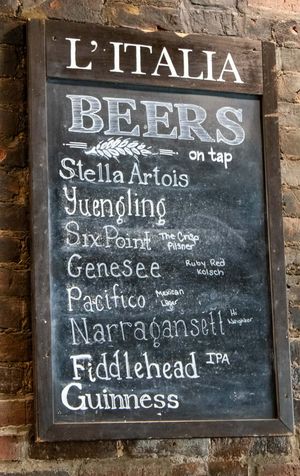 L'ITALIA
BEERS
on tap
Stella Artois
Yuengling
Six Point The Crisp Pilsner
Genesee Ruby Red Kolsch
Pacifico Mexican Lager
Narragansett Hi Neighbor
Fiddlehead IPA
Guinness